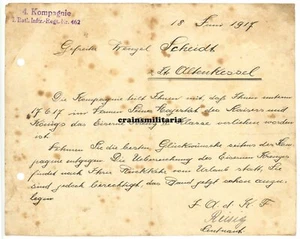 4. Kompagnie
Inftr.-Regt. Nr. 462
18 Juni 1917
Gefreite Wenzel Scheidt
Altenkessel
Die Kompagnie teilt Ihnen mit, daß Ihnen unterm
17.6.17 im Namen Seiner Majestät des Kaisers und
Königs das Eiserne Kreuz Klasse verliehen worden
ist.
crainsmilitaria
Nehmen Sie die besten Glückwünsche seitens der Kom-
pagnie entgegen. Die Ueberreichung des Eisernen Kreuzes
findet nach Ihrer Rückkehr vom Urlaub statt, Sie
sind jedoch berechtigt, das Band jetzt schon anzu-
legen.
F. d. K. F.
Leutnant